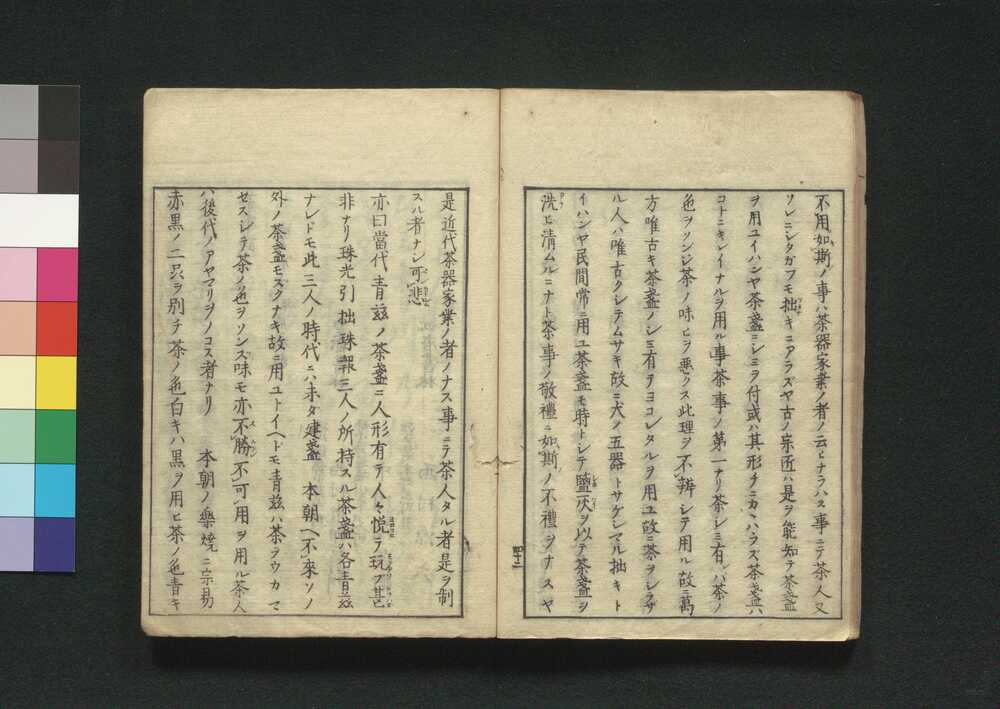 不用如斯ノ事ハ茶器家業ノ者ノ云ヒナラハス事ニテ茶ノ人又
ソレニシタガフモ拙キニアラズヤ古ノ宗匠ハ是ヲ能知テ茶盞
ヲ用ユイハンヤ茶盞ニシミヲ付或ハ其形チニカヽハラズ茶盞ハ
コトニキレイナルヲ用ル事茶事ノ第一ナリ茶シミ有レバ茶ノ
色ヲソンジ茶ノ味ヒヲ悪クス此理ヲ不辨シテ用ル故ニ萬
方唯古キ茶盞ノシミ有テヨコレタルヲ用ユ故ニ茶ヲシラザ
ル人ハ唯古クシテムサキ故ニ犬ノ五器トサゲシマル拙キト
イハンヤ民間常ニ用ユ茶盞モ時トシテ鹽灰ヲ以テ茶盞ヲ
洗ヒ清ムルニナト茶事ノ敬禮ニ如斯ノ不禮ヲナスヤ
四十二
是近代茶器家業ノ者ノナス事ニテ茶人タル者是ヲ制
スル者ナシ可悲
亦曰當代青玆ノ茶盞ニ人形有テ人々悦テ玩ブ甚
非ナリ珠光引拙珠報三人ノ所持スル茶盞ハ各青玆
ナレドモ此三人ノ時代ニハ未タ建盞　本朝ヘ不來ソノ
外ノ茶盞モスクナキ故ニ用ユトイヘドモ青玆ハ茶ヲウカマ
セスシテ茶ノ色ヲソンズ味モ亦不勝不可用ヲ用ル茶人
ハ後代ノアヤマリヲノコス者ナリ　本朝ノ樂焼ニ宗易
赤黒ノ二品ヲ別チ茶ノ色白キハ黒ヲ用ヒ茶ノ色青キ